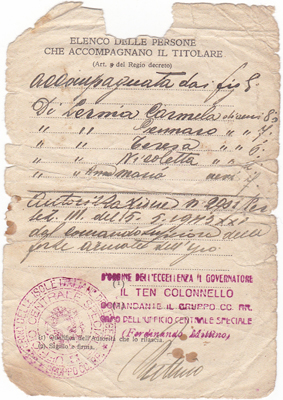 ELENCO DELLE PERSONE
CHE ACCOMPAGNANO IL TITOLARE
(Art. 9 del Regio decreto)
accompagnata dai figli
Di Lernia Carmela di anni 8
" " Gennaro " " 7
" " Teresa " " 6
" " Nicoletta " "
" Anna Maria mesi 7
Autorizzazione n
del 5.5.1943 XXI
del comando superiore delle
forze armate dell'Egeo
D'ORDINE DELL'ECCELLENZA IL GOVERNATORE
IL TEN COLONNELLO
COMANDANTE IL GRUPPO CC. RR.
CAPO DELL'UFFICIO CENTRALE SPECIALE
Ferdinando Mittino
(1) Qualifica dell'Autorità che lo rilascia.
(2) Sigillo e firma.